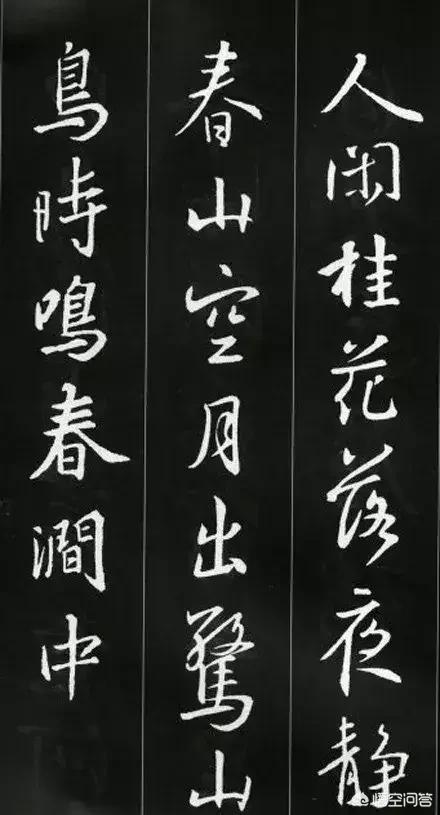 人闲桂花落夜静
春山空月出驚山
鳥時鳴春澗中
悟空问答